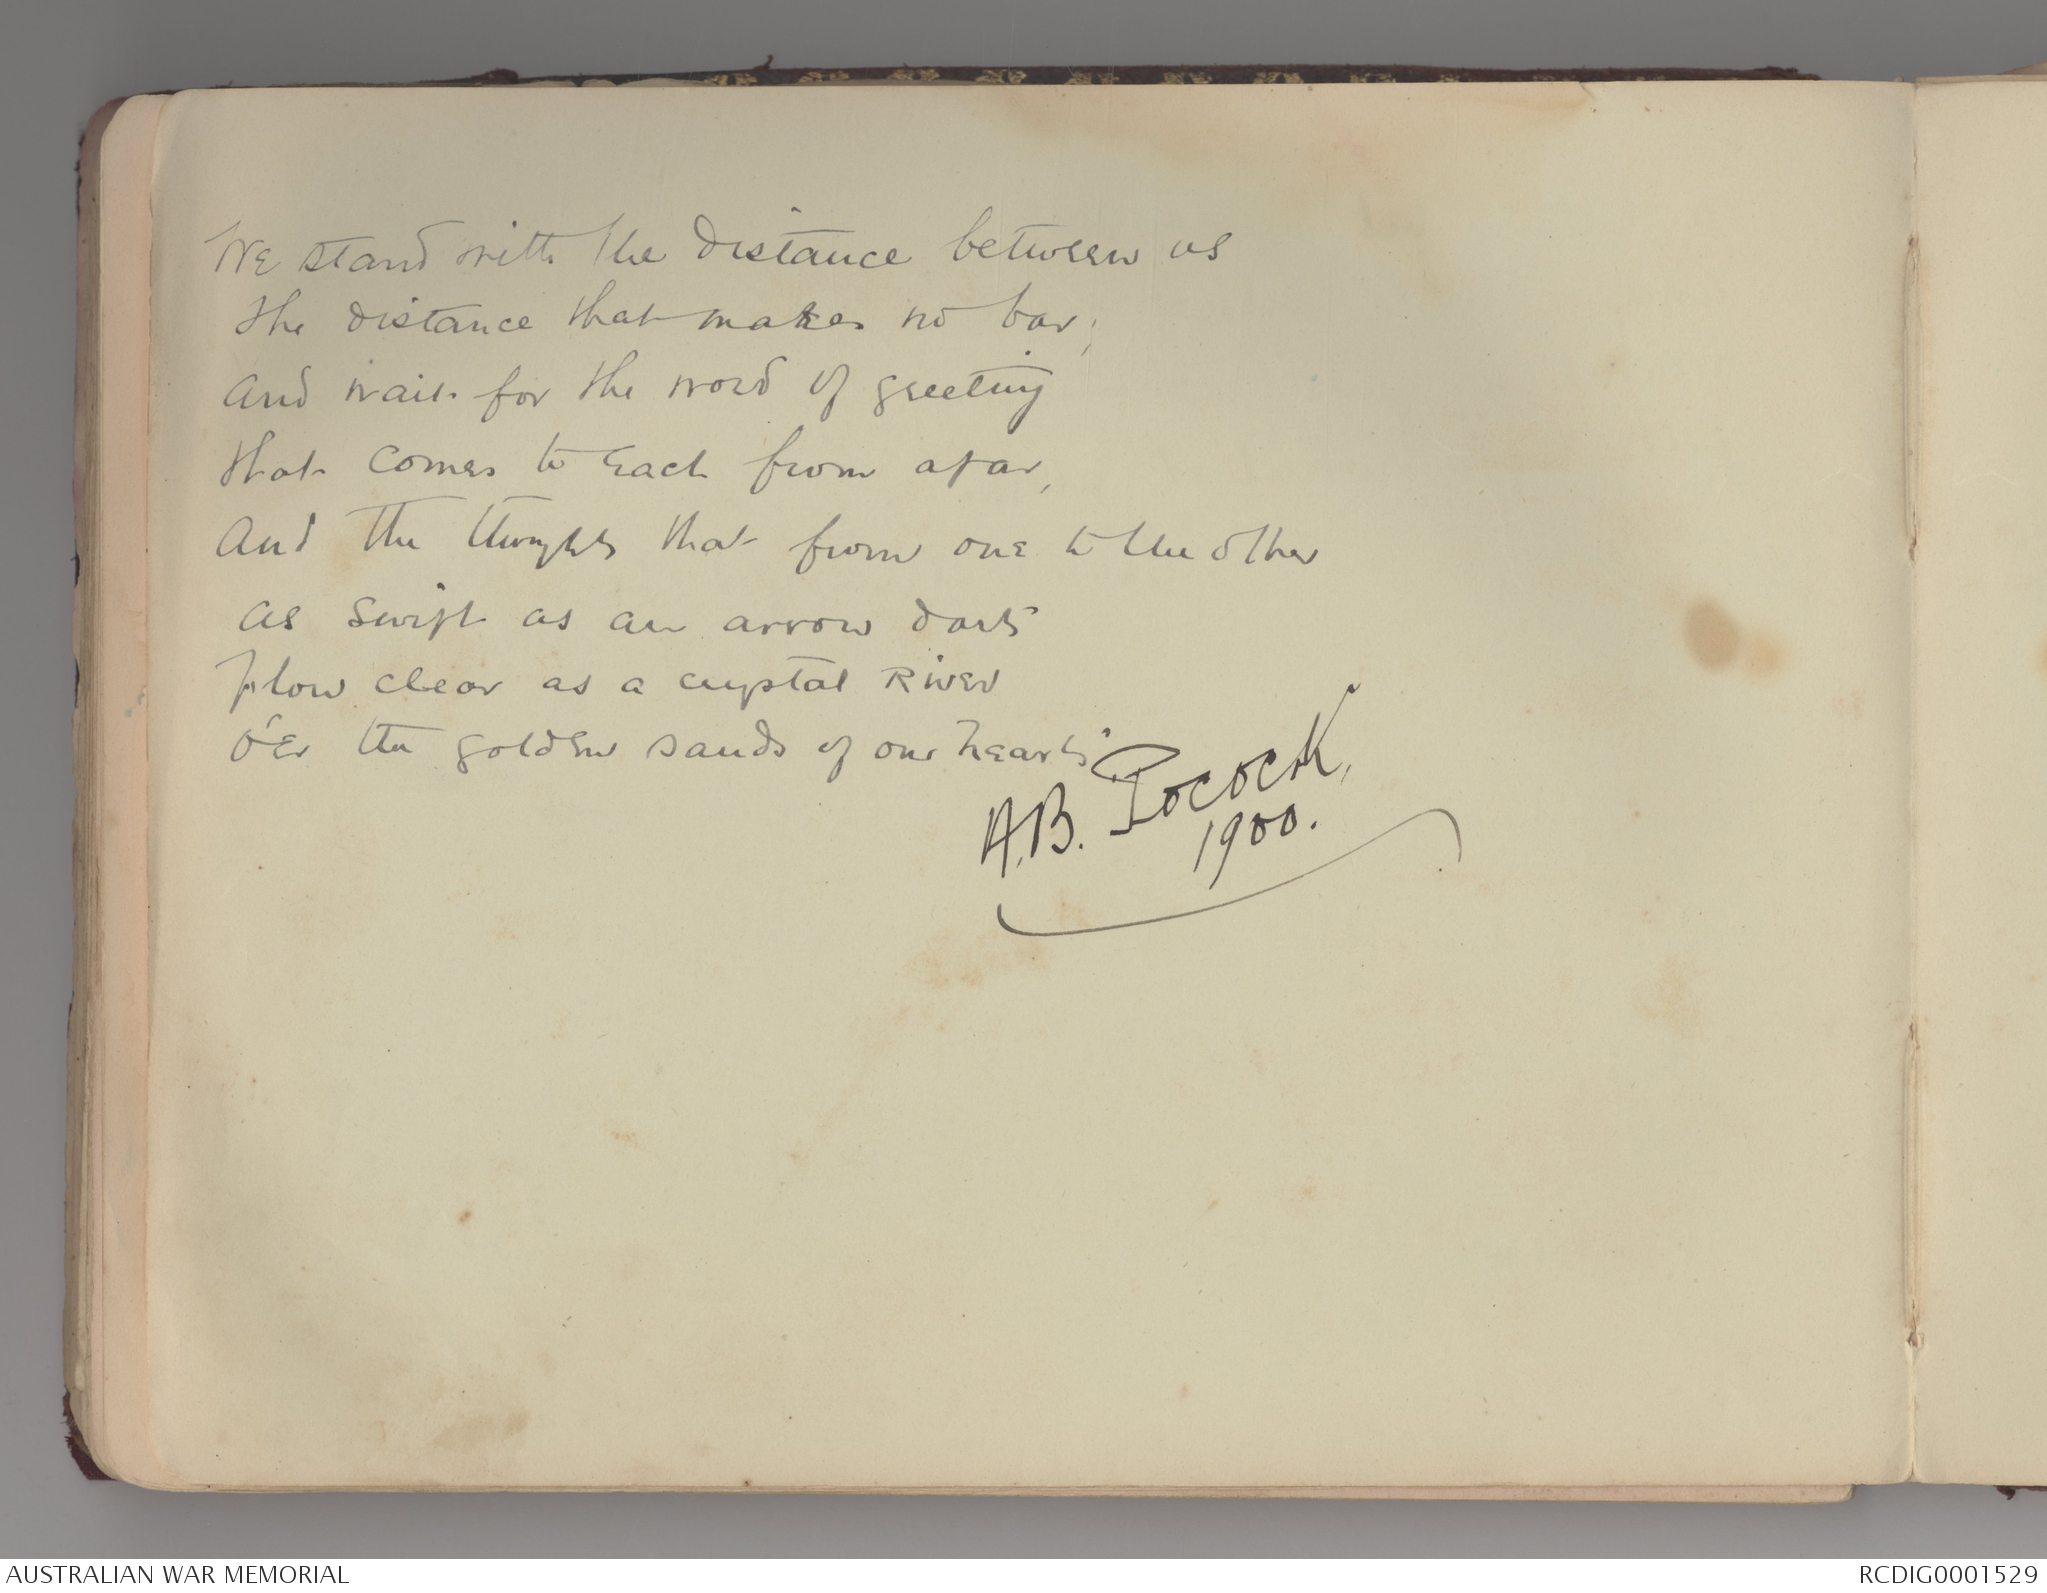 We stand with the distance between us
the distance that makes no bar,
and wait for the word of greeting
that comes to each from afar,
And the thoughts that from one to the other
as swift as an arrow darts
Flow clear as a crystal River
O'Er the golden sands of our hearts"
A.B. Pocock,
1900.
AUSTRALIAN WAR MEMORIAL
RCDIG0001529